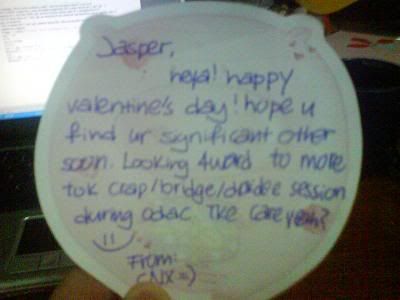 Jasper,
heya! happy
valentine's day! hope u
find ur significant other
soon. Looking 4ward to more
tok crap/bridge/daidee session
during odac. Tke care yeah?
From:
CNX =)